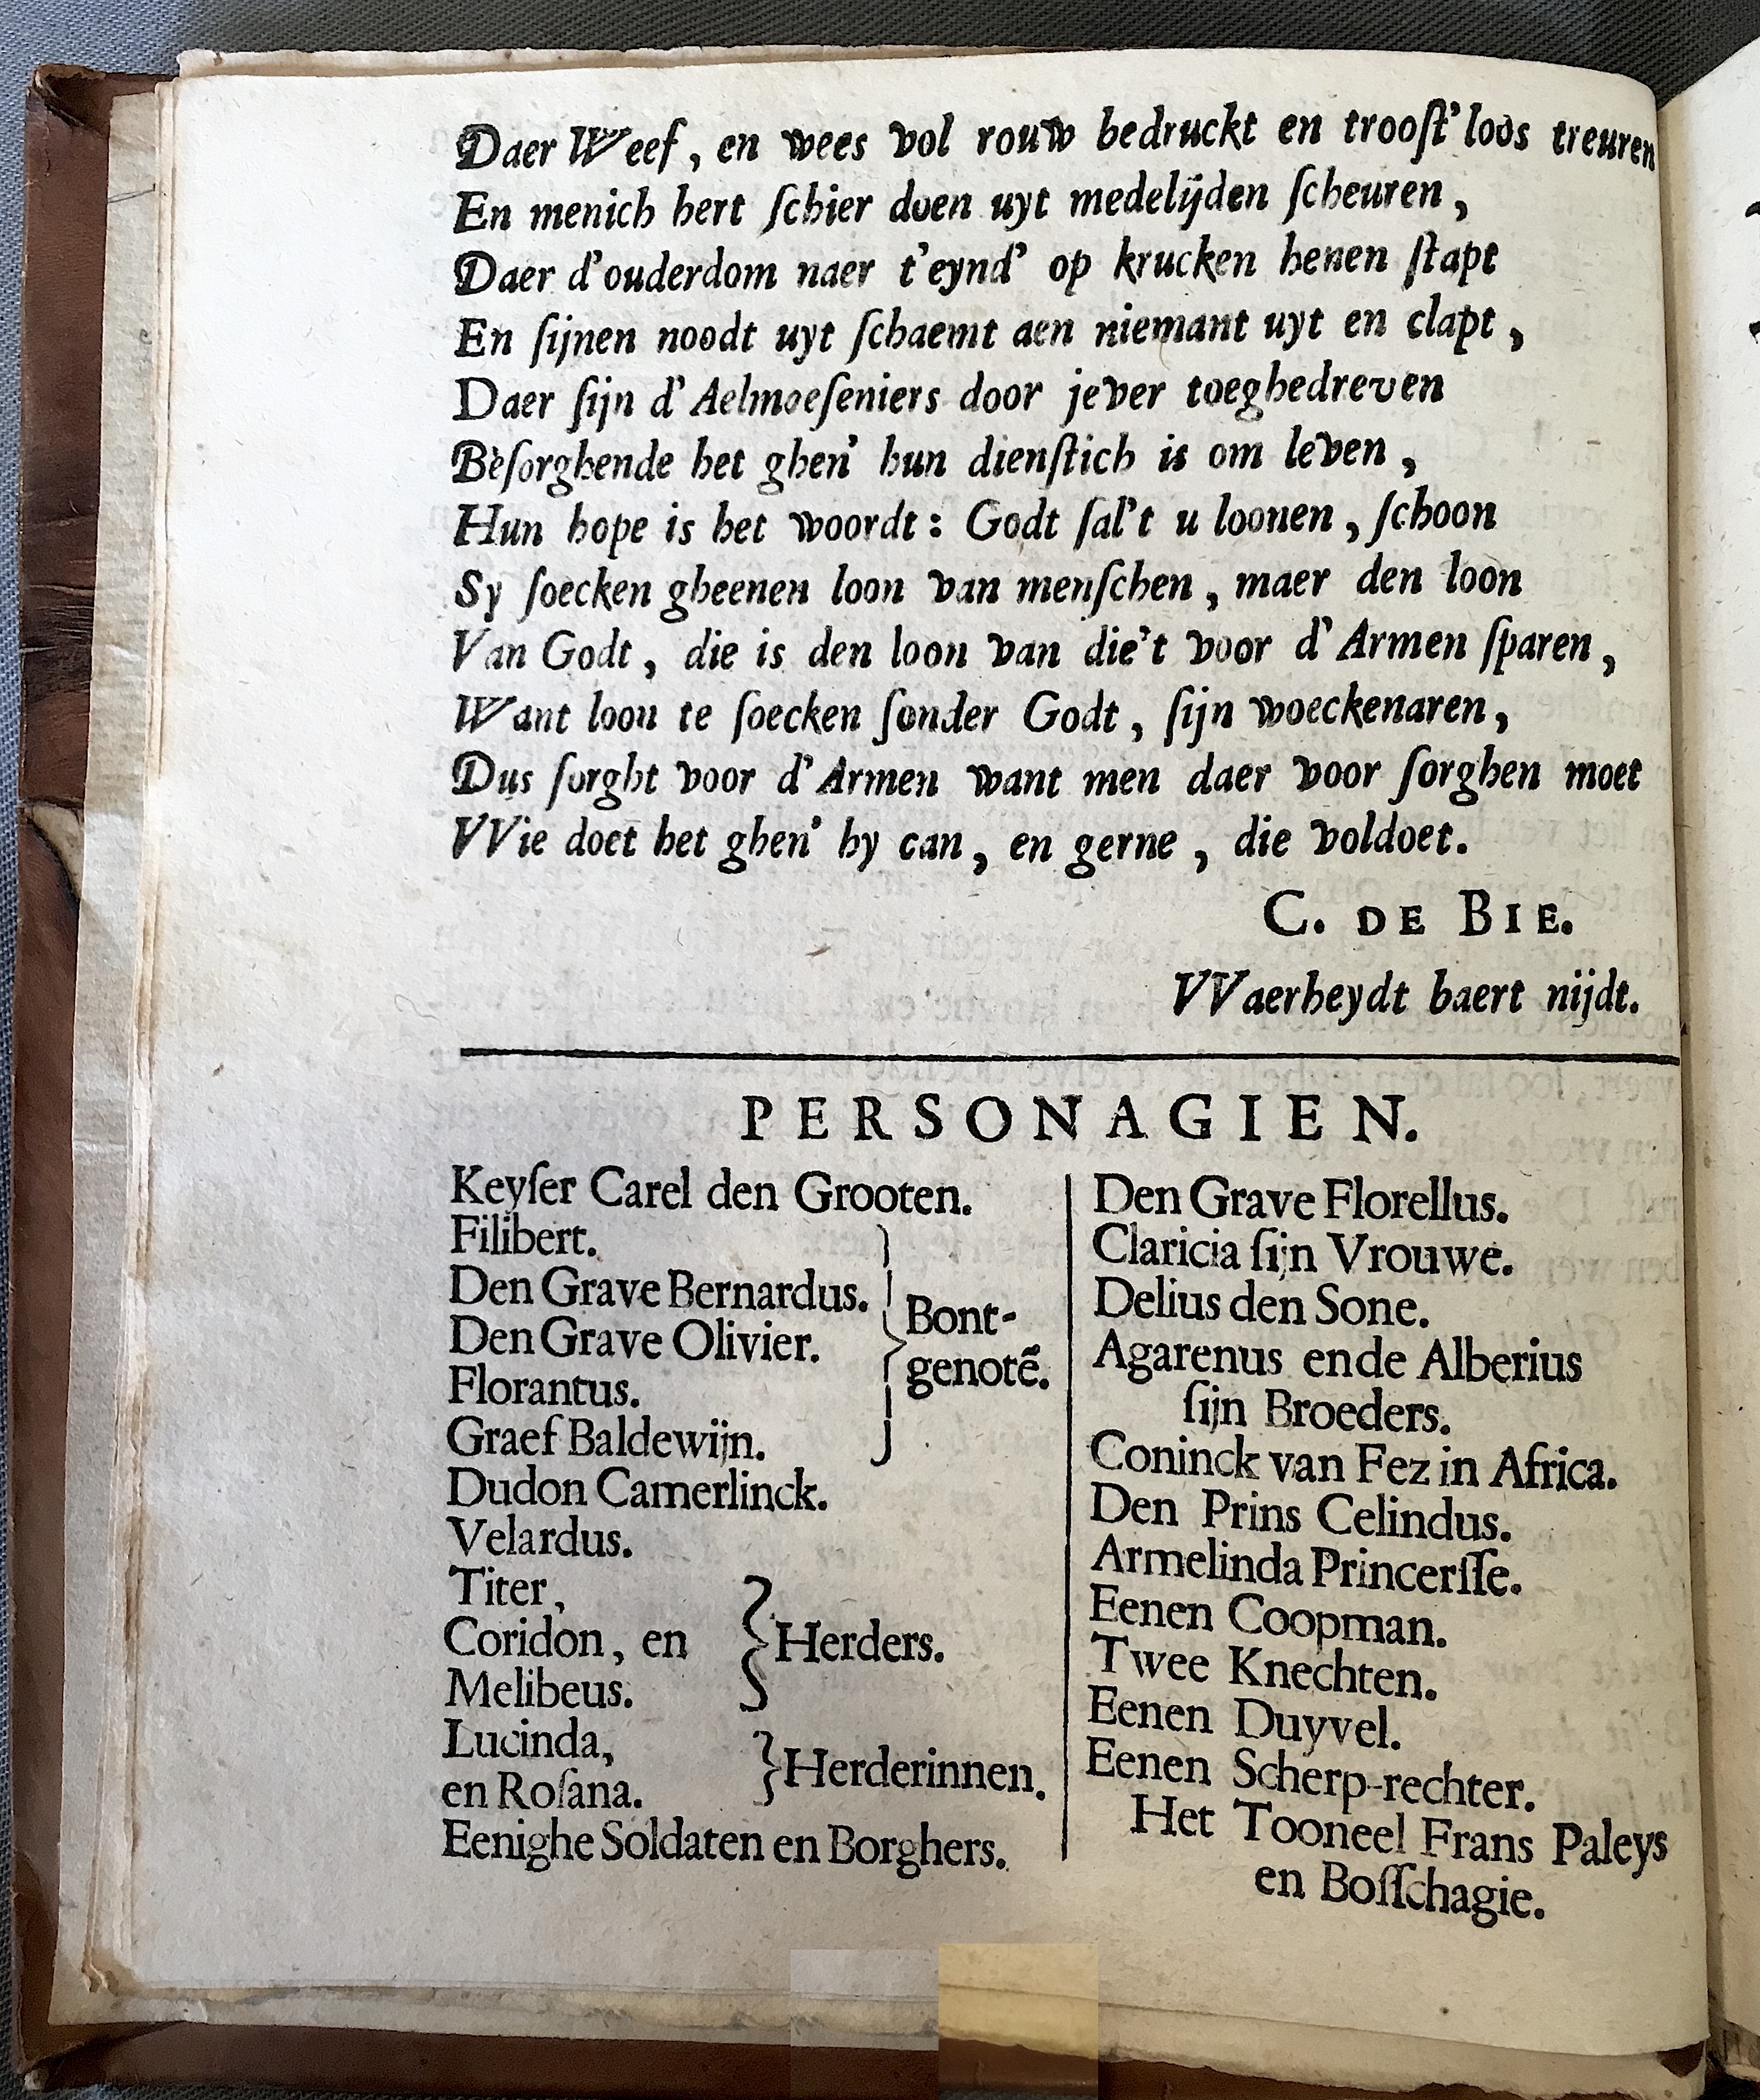 Daer Weef, en wees vol rouw bedruckt en trooſt'loos treuren
En menich hert ſchier doen uyt medelijden ſcheuren,
Daer d'ouderdom naer t'eynd' op krucken henen ſtapt
En ſijnen noodt uyt ſchaemt aen niemant uyt en clapt,
Daer ſijn d'Aelmoeſeniers door jever toeghedreven
Beſorghende het ghen' hun dienſtich is om leven,
Hun hope is het woordt: Godt ſal't u loonen, ſchoon
Sy ſoecken gheenen loon van menſchen, maer den loon
Van Godt, die is den loon van die't voor d'Armen ſparen,
Want loon te ſoecken ſonder Godt, ſijn woeckenaren,
Dus ſorght voor d'Armen want men daer voor ſorghen moet
VVie doet het ghen' hy can, en gerne, die voldoet.
C. DE BIE.
VVaerheydt baert nijdt.
PERSONAGIEN.
Keyſer Carel den Grooten.
Filibert.
Den Grave Bernardus.
Den Grave Olivier.
Florantus.
Graef Baldewijn.
Bont-
genotẽ.
Dudon Camerlinck.
Velardus.
Titer,
Coridon, en
Melibeus.
Herders.
Lucinda,
en Roſana.
Herderinnen.
Eenighe Soldaten en Borghers.
Den Grave Florellus.
Claricia ſijn Vrouwe.
Delius den Sone.
Agarenus ende Alberius
ſijn Broeders.
Coninck van Fez in Africa.
Den Prins Celindus.
Armelinda Princerſſe.
Eenen Coopman.
Twee Knechten.
Eenen Duyvel.
Eenen Scherp-rechter.
Het Tooneel Frans Paleys
en Boſſchagie.